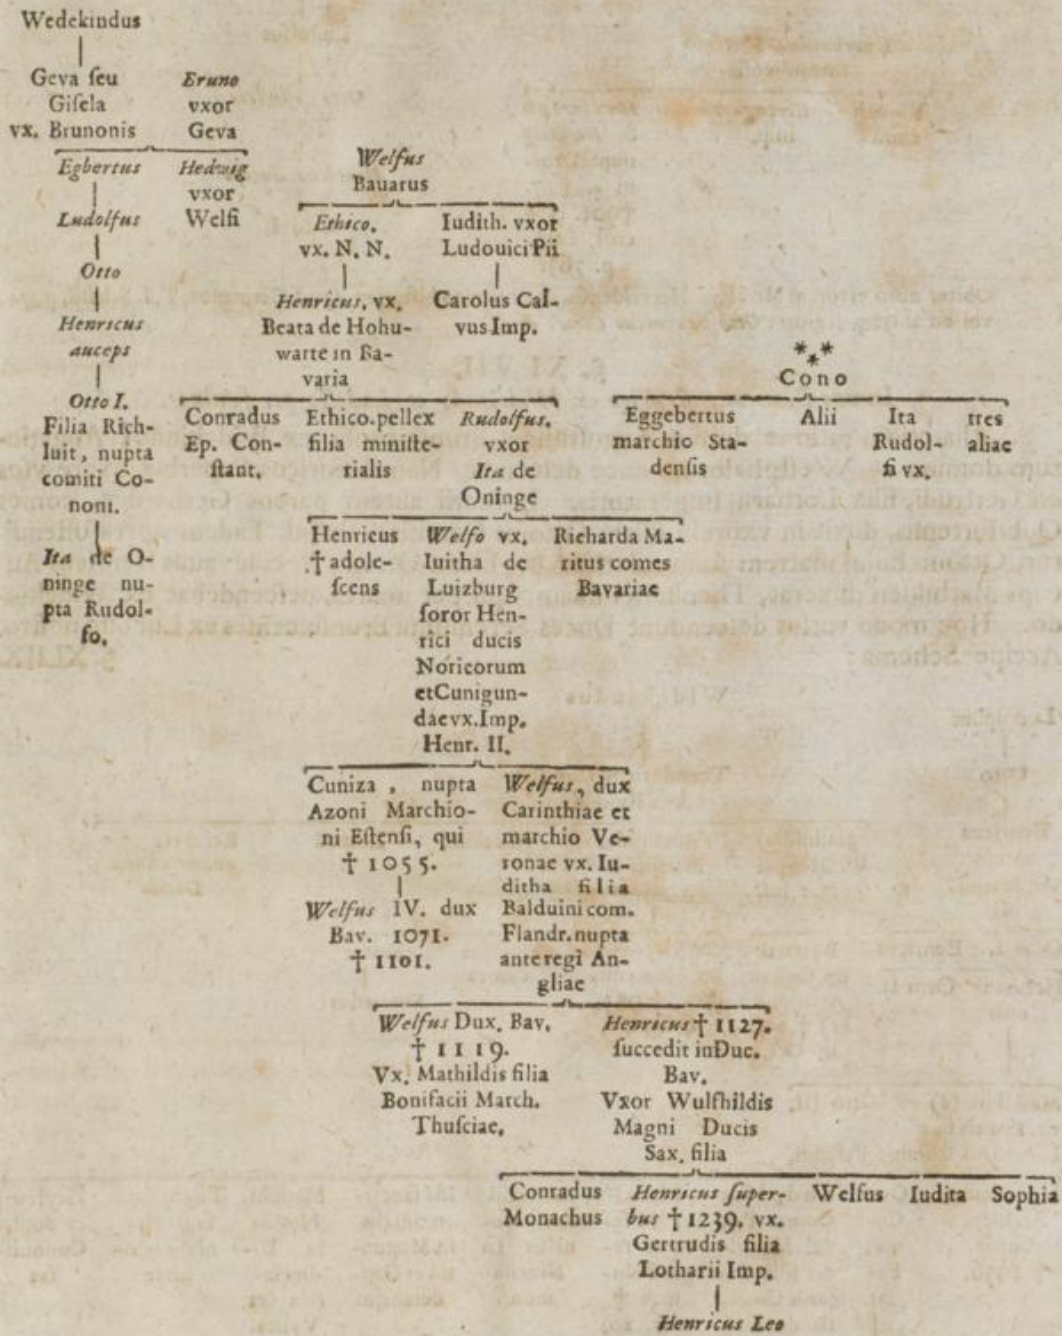 Wedekindus
Geva ſeu
Giſela
vx. Brunonis
Eruno
vxor
Geva
Egbertus
Ludolfus
Otto
Henricus
auceps
Otto I.
Filia Rich-
luit, nupta
comiti Co-
noni.
Ita de O-
ninge nu-
pta Rudol-
fo.
Hedwig
vxor
Welfi
Welfus
Bauarus
Ethico.
vx. N. N.
Iudith. vxor
Ludouici Pii
Henricus, vx.
Beata de Hohu-
warte in Ba-
varia
Carolus Cal-
vus Imp.
Conradus
Ep. Con-
ſtant.
Ethico.pellex
filia miniſte-
rialis
Rudolfus.
vxor
Ita de
Oninge
***
Cono
Eggebertus
marchio Sta-
denſis
Alii
Ita
Rudol-
fi vx.
tres
aliae
Henricus
† adole-
ſcens
Welfo vx.
Iuitha de
Luizburg
ſoror Hen-
rici ducis
Noricorum
etCunigun-
daevx.Imp.
Henr. II.
Richarda Ma-
ritus comes
Bavariae
Cuniza , nupta
Azoni Marchio-
ni Eſtenſi, qui
† 1055.
Welfus IV. dux
Bav. 1071.
† 1101.
Welfus, dux
Carinthiae et
marchio Ve-
ronae vx. Iu-
ditha filia
Balduini com.
Flandr.nupta
ante regi An-
gliae
Welfus Dux. Bav.
† 1119.
Vx. Mathildis filia
Bonifacii March.
Thuſciae.
Henricus † 1127.
ſuccedit inDuc.
Bav.
Vxor Wulfhildis
Magni Ducis
Sax. filia
Conradus
Monachus
Henricus ſuper-
bus † 1239. vx.
Gertrudis filia
Lotharii Imp.
Henricus Leo
Welfus
Iudita
Sophia